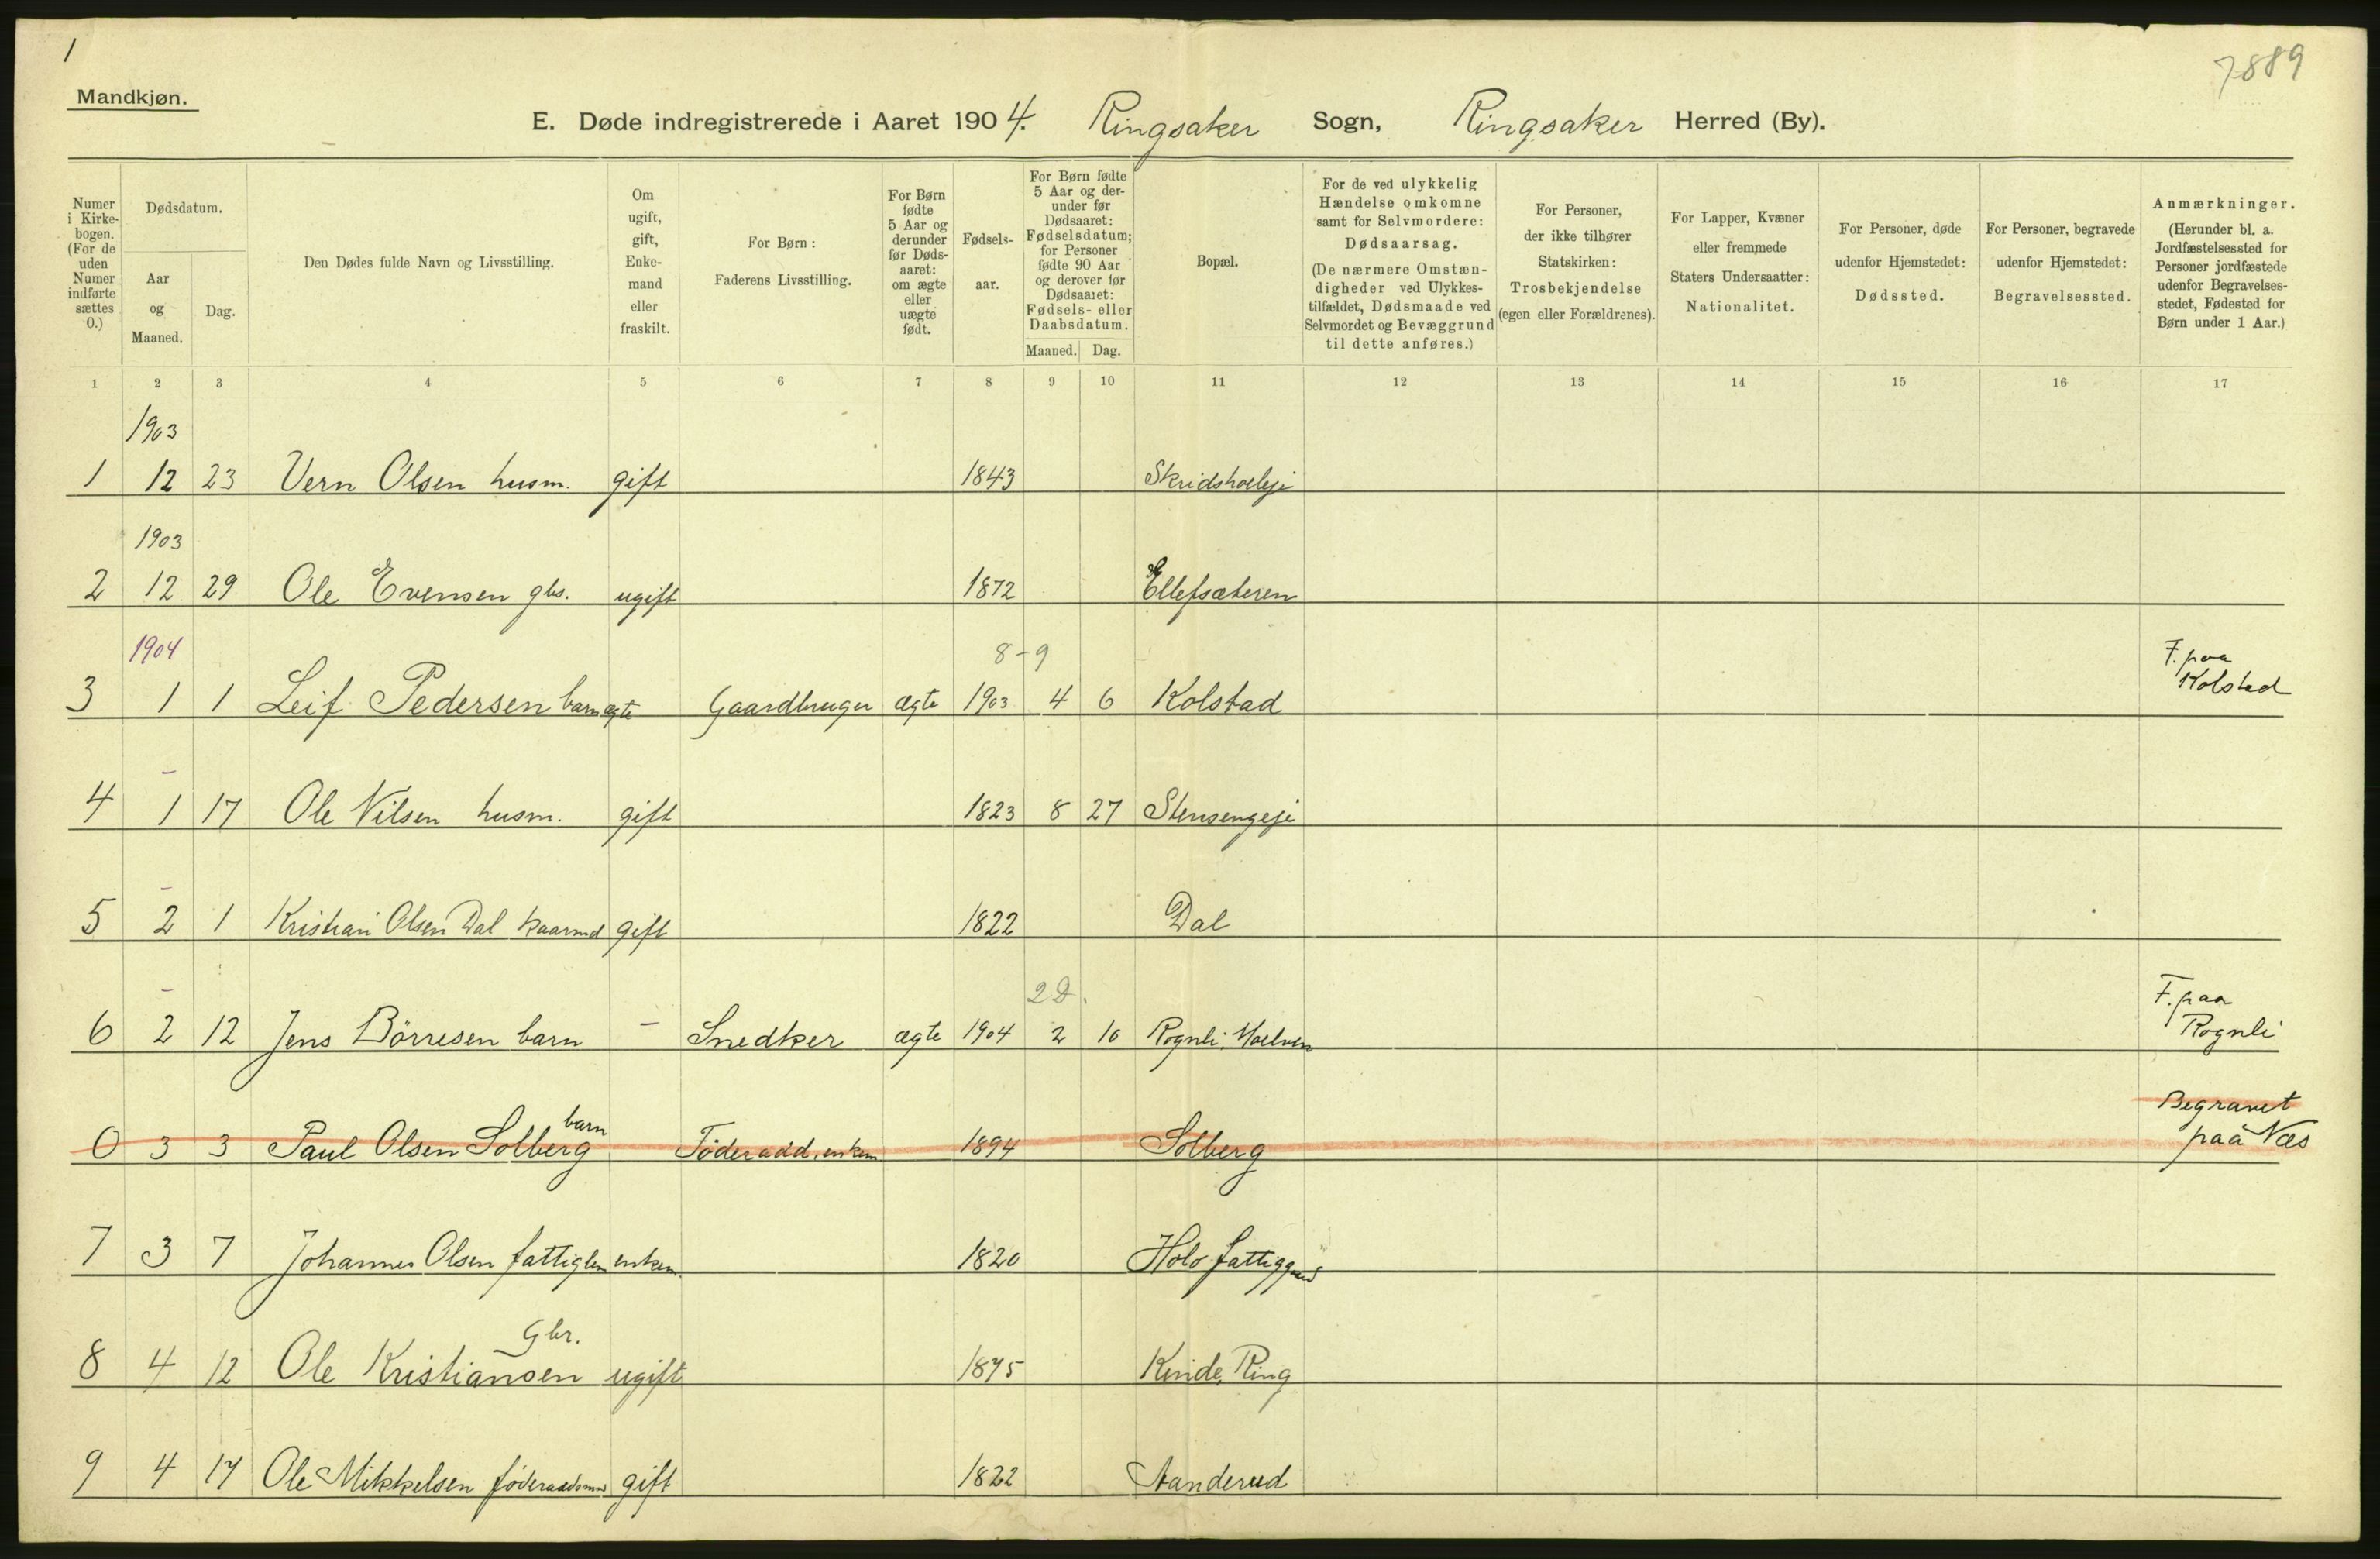 1
7889
Mandkjøn.
E. Døde indregistrerede i Aaret 1904. Ringsaker Sogn, Ringsaker Herred (By).
Numer i Kirke-bogen. (For de uden Numer indførte sættes 0.)
Dødsdatum.
Aar og Maaned.
Dag.
Den Dødes fulde Navn og Livsstilling.
Om ugift, gift, Enke-mand eller fraskilt.
For Børn:
Faderens Livsstilling.
For Børn fødte 5 Aar og derunder før Døds-aaret: om ægte eller uægte født.
Fødsels-aar.
For Børn fødte 5 Aar og der-under før Dødsaaret: Fødselsdatum; for Personer fødte 90 Aar og derover før Dødsaaret: Fødsels- eller Daabsdatum.
Maaned. Dag.
Bopæl.
For de ved ulykkelig Hændelse omkomne samt for Selvmordere: Dødsaarsag.
(De nærmere Omstæn-digheder ved Ulykkes-tilfældet, Dødsmaade ved Selvmordet og Bevæggrund til dette anføres.)
For Personer, der ikke tilhører Statskirken: Trosbekjendelse (egen eller Forældrenes).
For Lapper, Kvæner eller fremmede Staters Undersaatter: Nationalitet.
For Personer, døde udenfor Hjemstedet: Dødssted.
For Personer, begravede udenfor Hjemstedet: Begravelsessted.
Anmærkninger.
(Herunder bl. a. Jordfæstelsessted for Personer jordfæstede udenfor Begravelses-stedet, Fødested for Børn under 1 Aar.)
1 2 3 4 5 6 7 8 9 10 11 12 13 14 15 16 17
1903
1 12 23 Vern Olsen husm. gift 1843
1903
2 12 29 Ole Evensen gbs. ugift 1872 Ellefsæteren
1904 8-9 F. paa
3 1 1 Leif Pedersen barn ægte Gaardbruger ægte 1903 4 6 Kolstad Kolstad
–
4 1 17 Ole Nilsen husm. gift 1823 8 27 Stensengeje
–
5 2 1 Kristian Olsen Dal kaarmd gift 1822 Dal
– 2 D. F. paa
6 2 12 Jens Börresen barn – Snedker ægte 1904 2 10 Rognli, Moelven Rognli
barn Begravet
0 3 3 Paul Olsen Solberg Föderaad, enkem 1894 Solberg paa Næs
7 3 7 Johannes Olsen fattiglem enkem. 1820 Holo fattiggaard
Gbr.
8 4 12 Ole Kristiansen ugift 1875 Kinde, Ring
9 4 17 Ole Mikkelsen föderaadsmd gift 1822 Aanderud